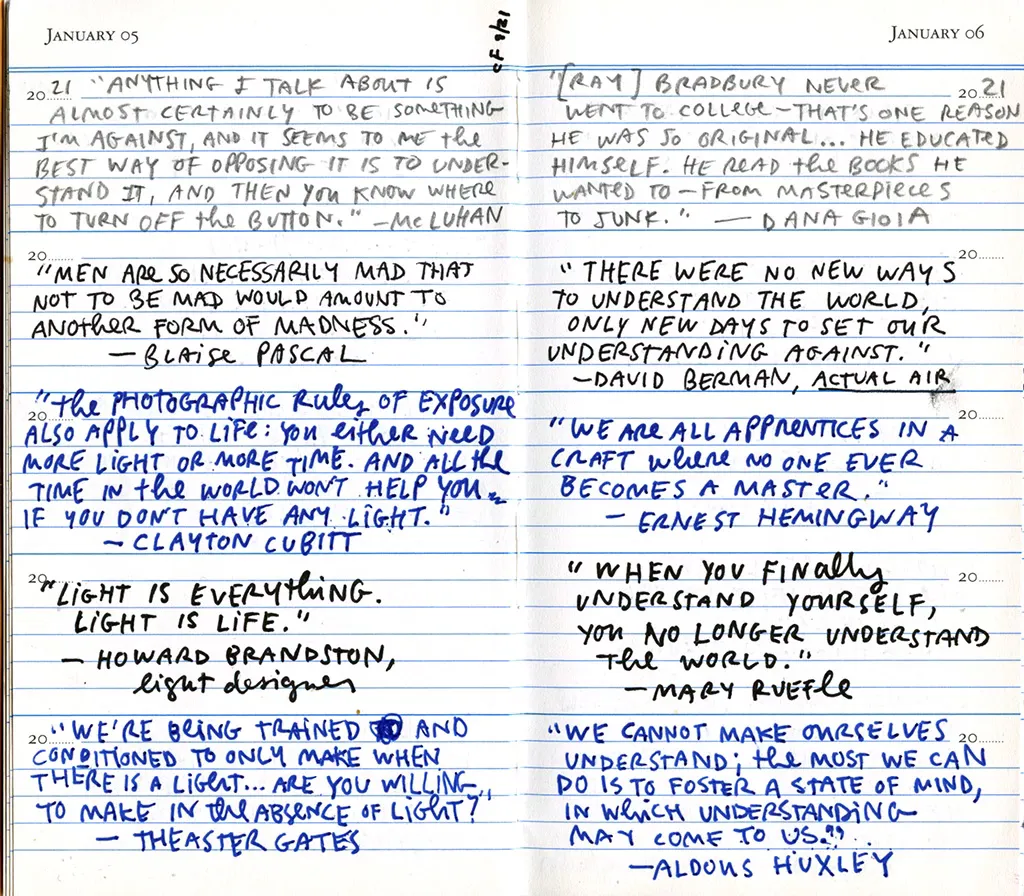 JANUARY 05
cf 9/21
20 21 "ANYTHING I TALK ABOUT IS
ALMOST CERTAINLY TO BE SOMETHING
I'M AGAINST, AND IT SEEMS TO ME the
BEST WAY OF OPPOSING IT IS TO UNDER-
STAND IT, AND THEN YOU KNOW WHERE
TO TURN OFF the BUTTON." —McLUHAN
20
"MEN ARE SO NECESSARILY MAD THAT
NOT TO BE MAD WOULD AMOUNT TO
ANOTHER FORM OF MADNESS."
—BLAISE PASCAL
"the PHOTOGRAPHIC RULES OF EXPOSURE
20
ALSO APPLY TO LIFE: YOU EITHER NEED
MORE LIGHT OR MORE TIME. AND ALL the
TIME IN the WORLD WON'T HELP YOU
IF YOU DON'T HAVE ANY LIGHT."
— CLAYTON CUBITT
20
"LIGHT IS EVERYTHING.
LIGHT IS LIFE."
— HOWARD BRANDSTON,
light designer
"WE'RE BEING TRAINED AND
20
CONDITIONED TO ONLY MAKE WHEN
THERE IS A LIGHT... ARE YOU WILLING
TO MAKE IN the ABSENCE OF LIGHT?
— THEASTER GATES
JANUARY 06
"[RAY] BRADBURY NEVER 20 21
WENT TO COLLEGE — THAT'S ONE REASON
HE WAS SO ORIGINAL... HE EDUCATED
HIMSELF. HE READ the BOOKS HE
WANTED TO — FROM MASTERPIECES
TO JUNK." — DANA GIOIA
20
"THERE WERE NO NEW WAYS
TO UNDERSTAND THE WORLD,
ONLY NEW DAYS TO SET OUR
UNDERSTANDING AGAINST."
—DAVID BERMAN, ACTUAL AIR
20
"WE ARE ALL APPRENTICES IN A
CRAFT WHERE NO ONE EVER
BECOMES A MASTER."
— ERNEST HEMINGWAY
"WHEN YOU FINALLY
20
UNDERSTAND YOURSELF,
YOU NO LONGER UNDERSTAND
the WORLD."
—MARY RUEFLE
"WE CANNOT MAKE OURSELVES 20
UNDERSTAND; the MOST WE CAN
DO IS TO FOSTER A STATE OF MIND,
IN WHICH UNDERSTANDING
MAY COME TO US."
—ALDOUS HUXLEY